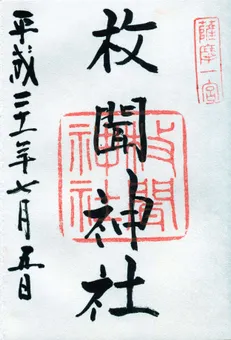 薩摩一宮
枚聞神社
枚聞神社
平成二十一年七月五日